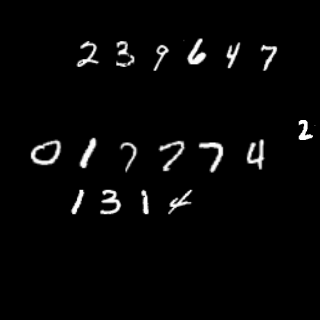 239647
017774
2
1314